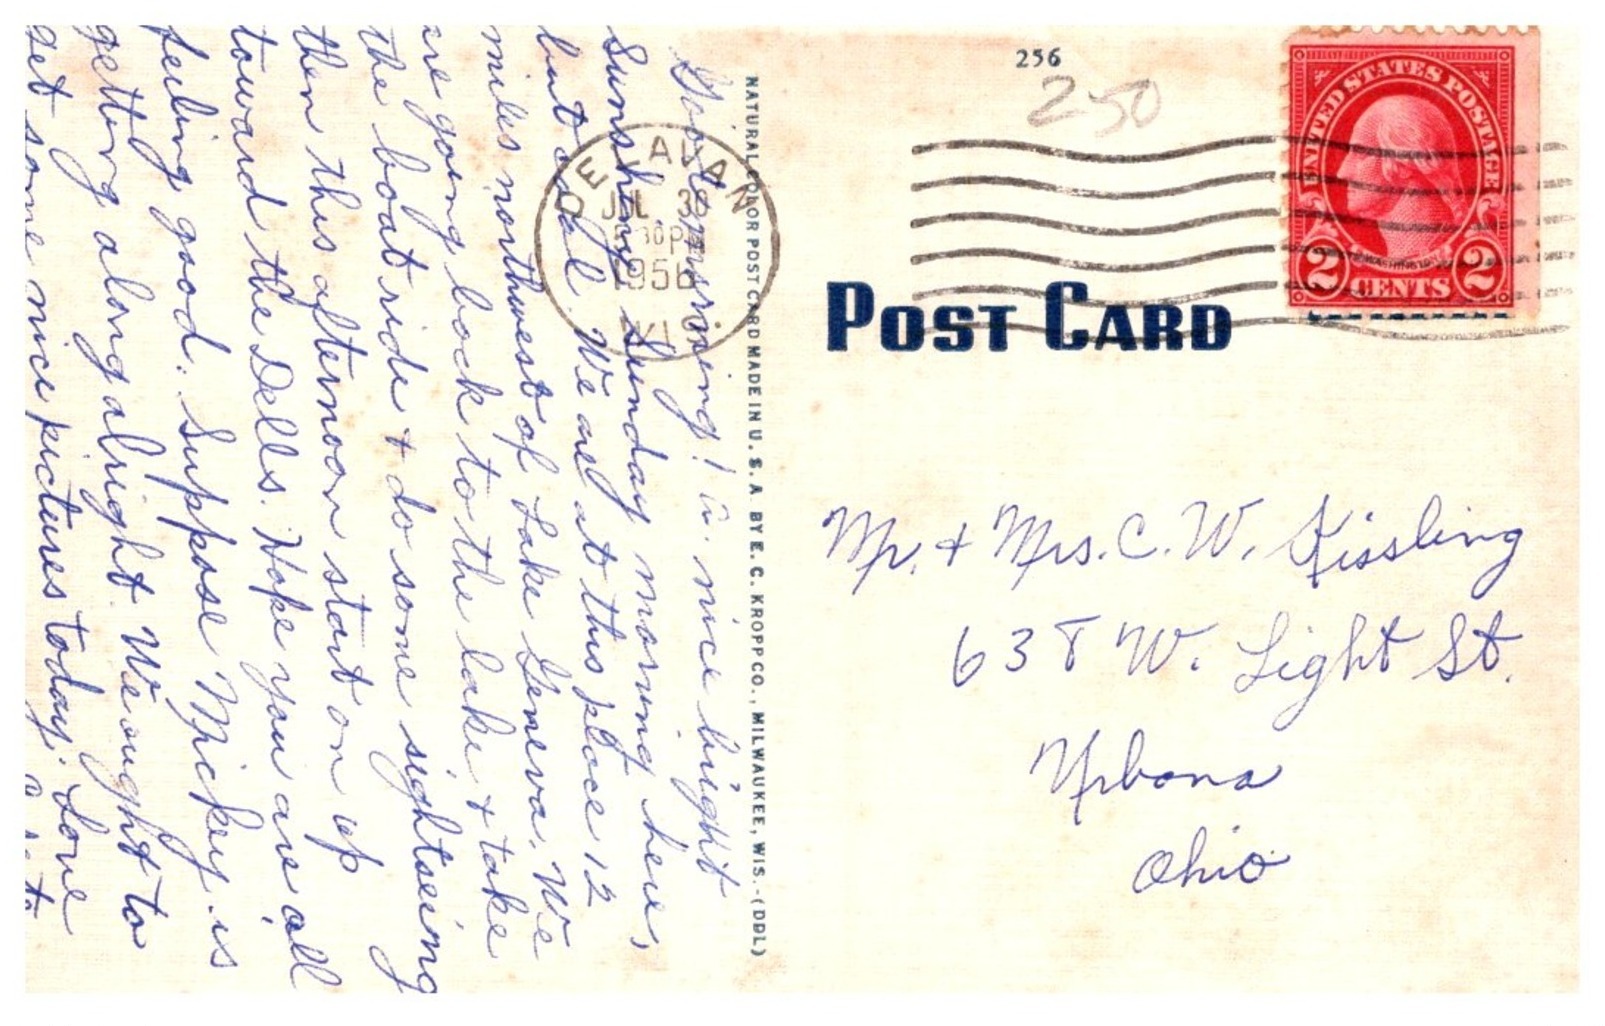 Good morning! A nice bright
Sunshiny Sunday morning here,
but cool. We are at this place 12
miles northwest of Lake Geneva. We
are going back to the lake & take
the boat ride & do some sightseeing
then this afternoon start on up
toward the Dells. Hope you are all
feeling good. Suppose Mickey is
getting along alright. We ought to
get some nice pictures today. Love
NATURAL COLOR POST CARD MADE IN U. S. A BY E. C. KROPP CO., MILWAUKEE, WIS.-(DDL)
DELAVAN
JUL
30 PM
1956
WIS.
256
250
UNITED STATES POSTAGE
WASHINGTON
2 CENTS 2
POST CARD
Mr. + Mrs. C. W. Kissling
638 W. Light St.
Urbana
Ohio